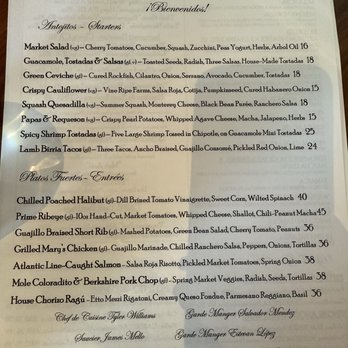 ¡Bienvenidos!
Antojitos - Starters
Market Salad (vg) – Cherry Tomatoes, Cucumber, Squash, Zucchini, Peas Yogurt, Herbs, Arbol Oil 16
Guacamole, Tostadas & Salsas (gf, v) – Toasted Seeds, Radish, Three Salsas, House-Made Tortillas 18
Green Ceviche (gf) – Cured Rockfish, Cilantro, Onion, Serrano, Avocado, Cucumber, Tostadas 18
Crispy Cauliflower (vg) – Vine Ripe Farms, Salsa Roja, Cotija, Pumpkinseed, Cured Habanero Onion 15
Squash Quesadilla (vg) – Summer Squash, Monterey Cheese, Black Bean Purée, Ranchero Salsa 18
Papas & Requeson (vg) – Crispy Pearl Potatoes, Whipped Agave Cheese, Macha, Jalapeno, Herbs 15
Spicy Shrimp Tostadas (gf) – Five Large Shrimp Tossed in Chipotle, on Guacamole Mini Tostadas 25
Lamb Birria Tacos (gf) – Three Tacos, Ancho Braised, Guajillo Consomé, Pickled Red Onion, Lime 24
Platos Fuertes - Entrées
Chilled Poached Halibut (gf)- Dill Brined Tomato Vinaigrette, Sweet Corn, Wilted Spinach 40
Prime Ribeye (gf)-10oz Hand-Cut, Market Tomatoes, Whipped Cheese, Shallot, Chili-Peanut Macha 45
Guajillo Braised Short Rib (gf) – Mashed Potatoes, Green Bean Salad, Cherry Tomato, Peanuts 36
Grilled Mary's Chicken (gf) – Guajillo Marinade, Chilled Ranchero Salsa, Peppers, Onions, Tortillas 36
Atlantic Line-Caught Salmon – Salsa Roja Risotto, Pickled Market Tomatoes, Spring Onion 38
Mole Coloradito & Berkshire Pork Chop (gf) – Spring Market Veggies, Radish, Seeds, Tortillas 38
House Chorizo Ragú – Etto Mezzi Rigatoni, Creamy Queso Fondue, Parmesano Reggiano, Basil 36
Chef de Cuisine Tyler Williams Garde Manger Salvador Mendez
Saucier James Mello Garde Manger Estevan López